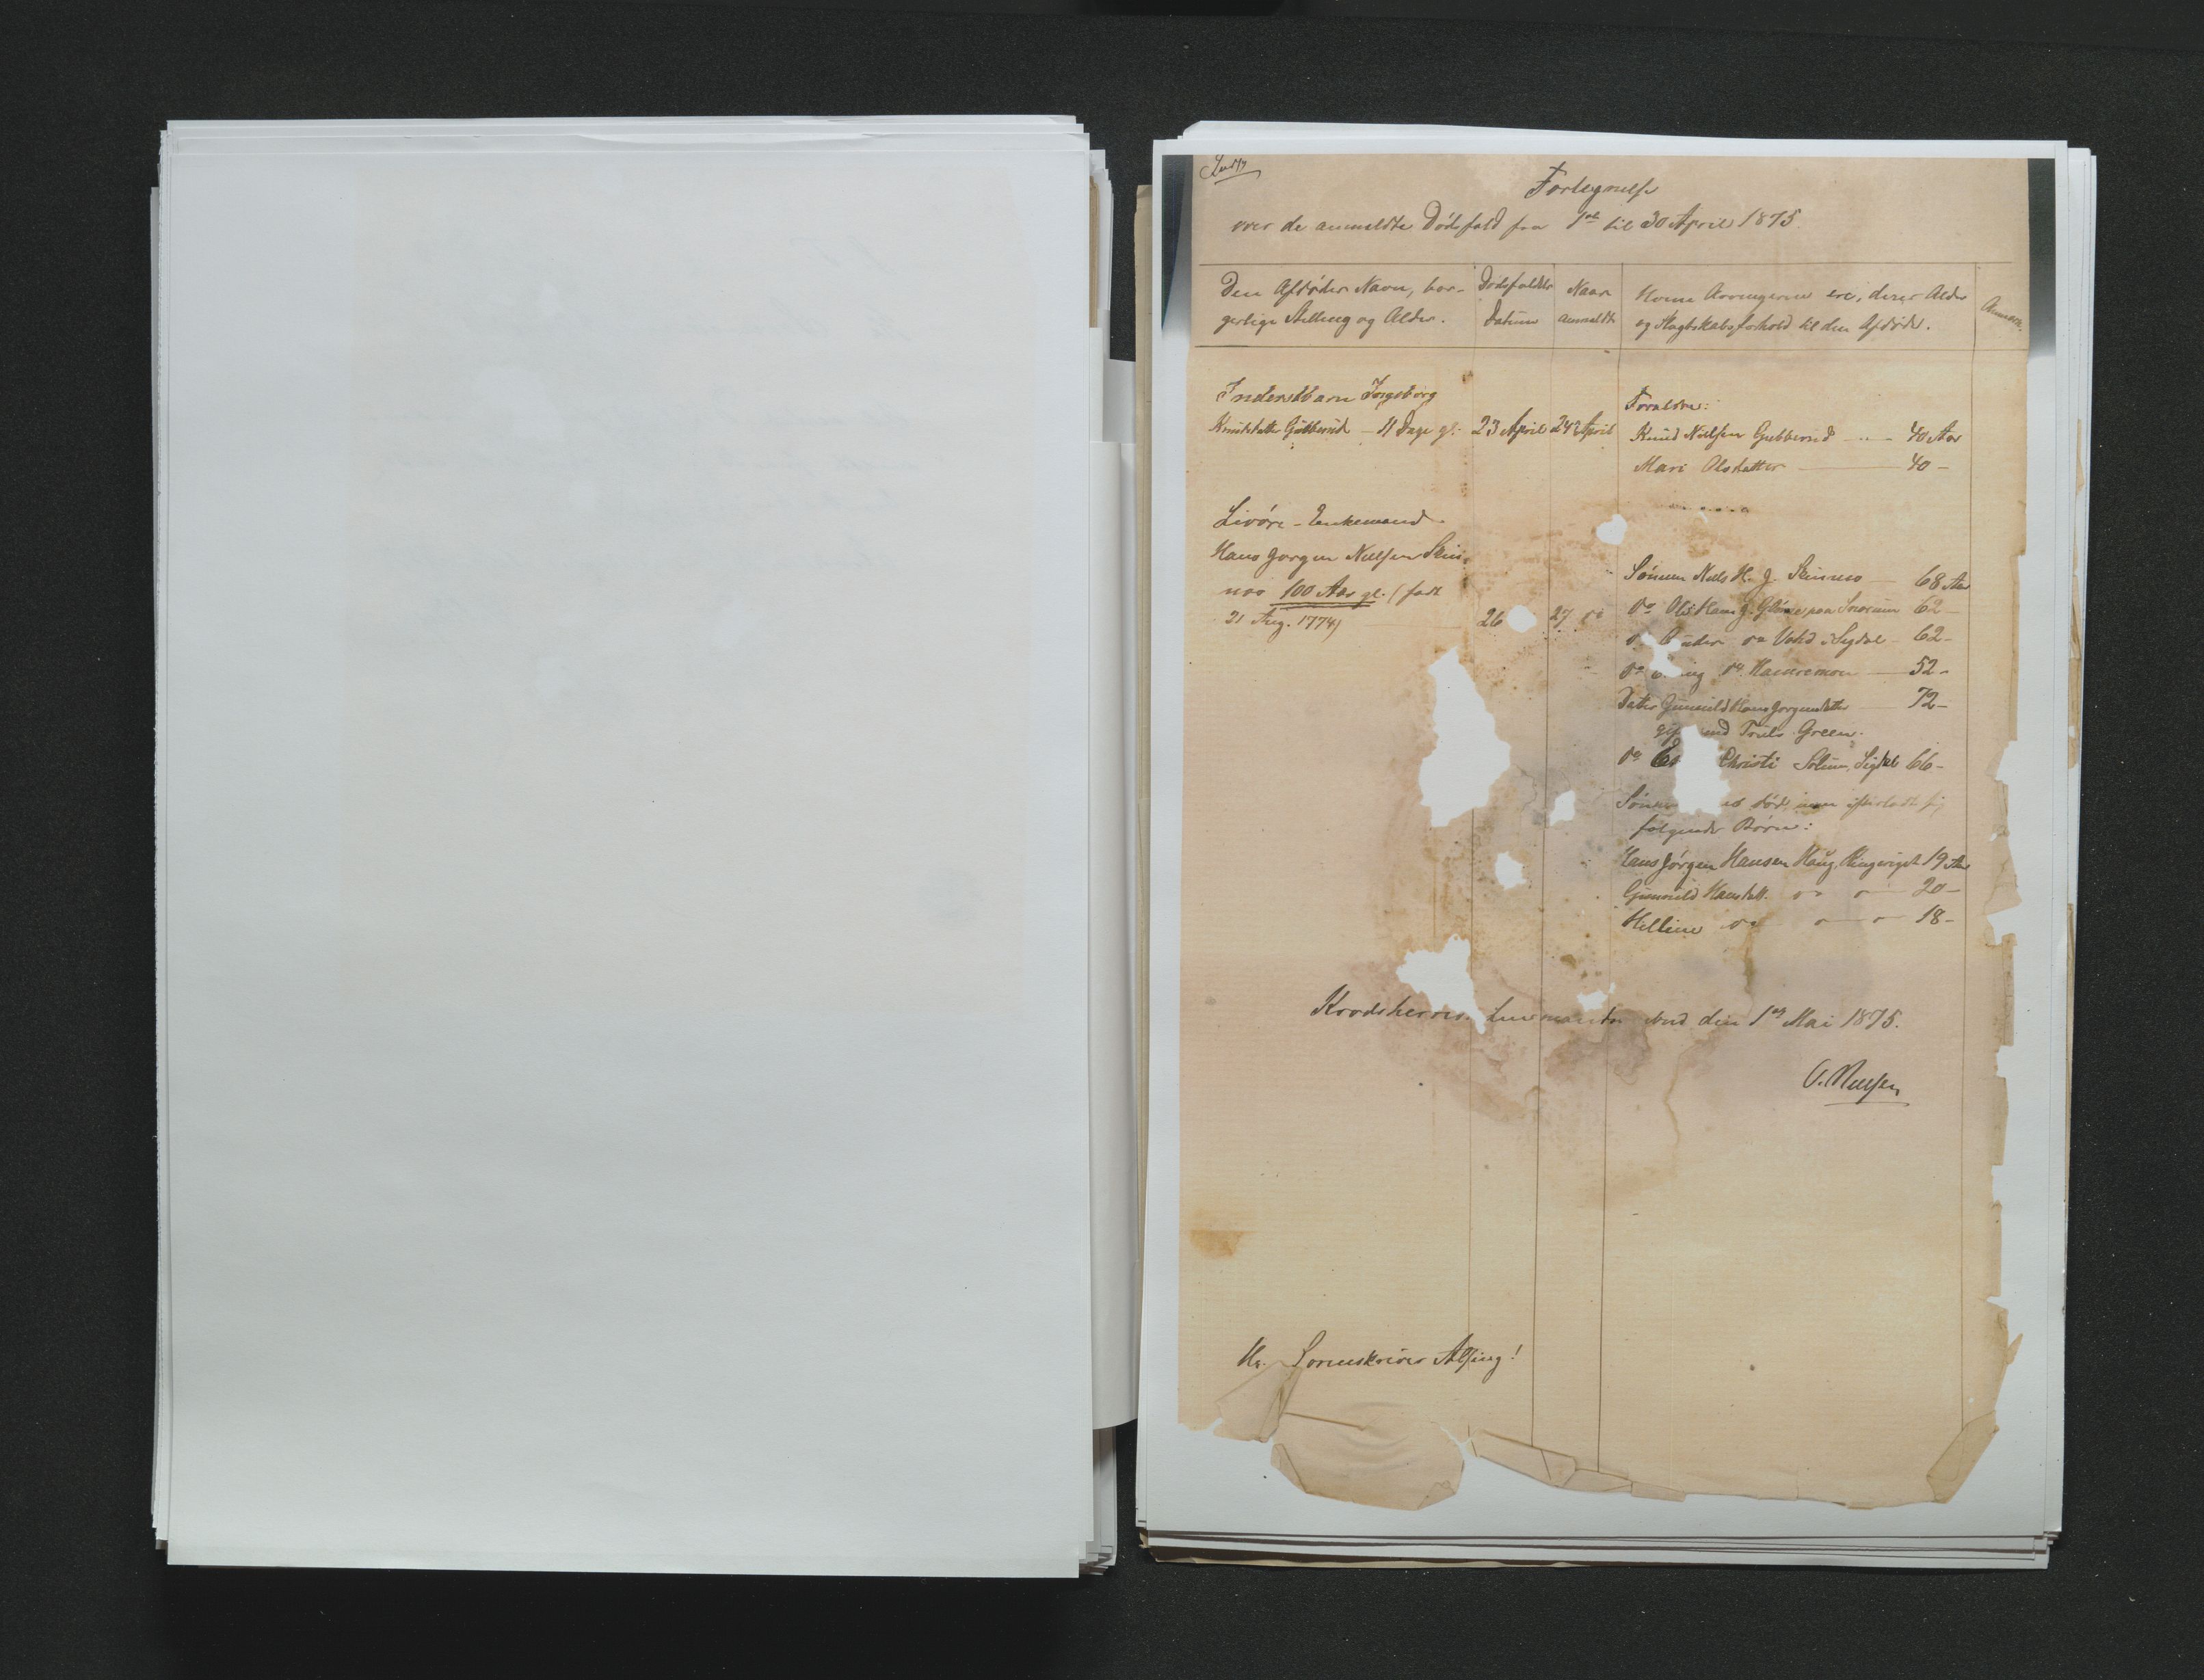 Fortegnelse
over de anmeldte Dødsfald fra 1ste til 30 April 1875.
Den Afdødes Navn, bor-
gerlige Stilling og Alder.
Dødsfaldets
Datum
Naar
anmeldt
Hvem Arvingerne ere, deres Alder
og Slægtskabsforhold til den Afdøde.
Anmærk.
Inderstbarn Ingeborg
Knudsdatter Gubberud - 11 Dage gl. 23 April 24 April
Forældre:
Knud Nielsen Gubberud 40 Aar
Mari Olsdatter 40 -
Livøre - Enkemand
Hans Jørgen Nielsen Skin-
nes 100 Aar gl. (født
21 Aug. 1774) 26 27 do
Sønnen Niels H. J. Skinnes 68 Aar
do Ole Hans J. paa Snarum 62
do do Vold i Sigdal - 62 -
do do 52 -
Datter Gunnild Hans Jørgensdatter 72 -
Truls Green.
do Christi Solum, Sigdal 66 -
Sønnen død, men efterladt sig
følgende Børn:
Hans Jørgen Hansen Haug, Ringeriget 19 Aar
Gunnild Hansdatt. do 20 -
Helline do 18 -
Krødsherred Lensmandsbestil den 1ste Mai 1875.
O. Nielsen
Hr. Sorenskriver Alsing!